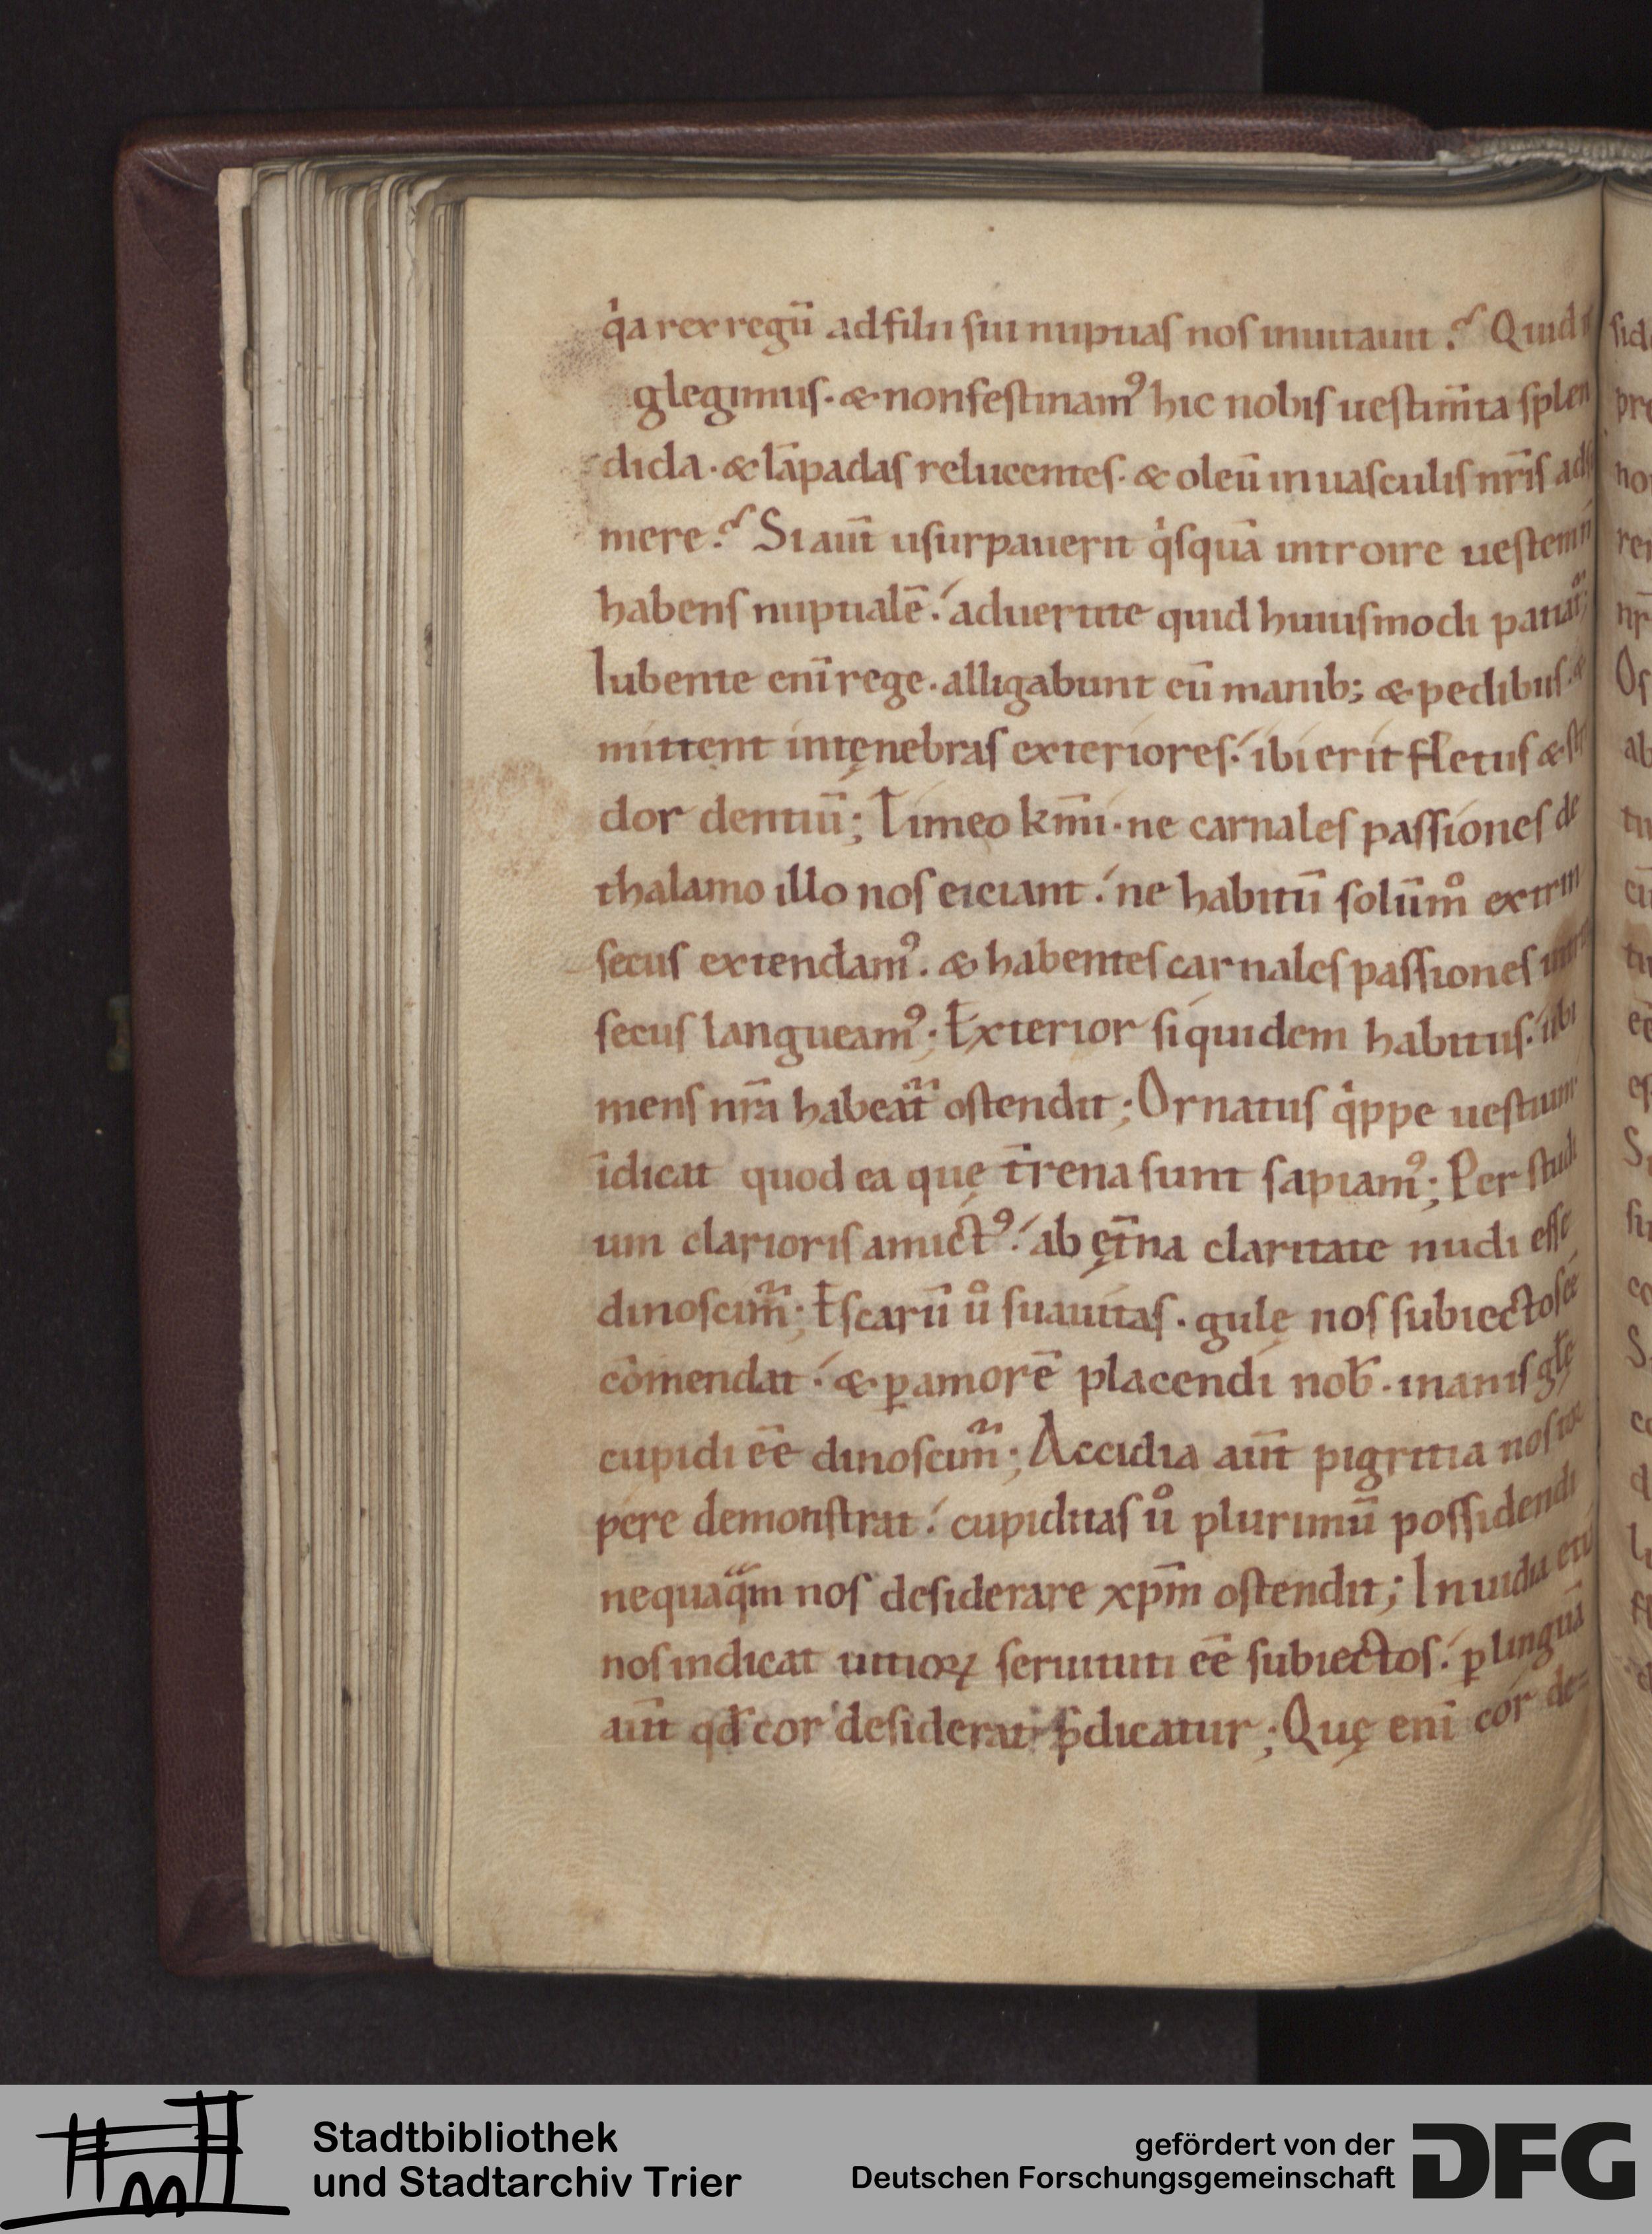 q̓a rex regũ ad filii sui nuptias nos inuitauit. Quid
glegimus. & non festinamꝰ hic nobis uestim̃ta splen
dida. & lãpadas relucentes. & oleũ in uasculis nr̃is
mere. Si aut̃ usurpauerit q̓squã introire uestem ñ
habens nuptialẽ. aduertite quid huiusmodi patiat̃;
Iubente eni rege. alligabunt eũ manib; & pedibus. &
mittent in tęnebras exteriores. ibi erit fletus &
dor dentiũ; Timeo km̃i. ne carnales passiones de
thalamo illo nos eiciant. ne habitũ solũm̊ extrin
secus extendamꝰ. & habentes carnales passiones
secus langueamꝰ; Exterior siquidem habitus. ubi
mens nr̃a habeat̃ ostendit; Ornatus q̓ppe uestium
ĩdicat quod ea quę t̃rena sunt sapiamꝰ; Per studi
um clarioris amictꝰ. ab ęt̃na claritate nudi esse
dinoscim̃; Escarũ ů suauitas. gulę nos subiectos eẽ
cõmendat. & ꝑ amorẽ placendi nob̄. inanis gl̃ę
cupidi eẽ dinoscim̃; Accidia aut̃ pigritia nos tor
pere demonstrat. cupiditas ů plurimũ possidendi
nequaq̃m nos desiderare xp̃m ostendit; Inuidia etĩ
nos indicat uitioꝝ seruituti eẽ subiectos. ꝑ linguã
aut̃ qd̄ cor desiderat p̄dicatur; Quę eni cor de-
Stadtbibliothek
und Stadtarchiv Trier
gefördert von der
Deutschen Forschungsgemeinschaft
DFG